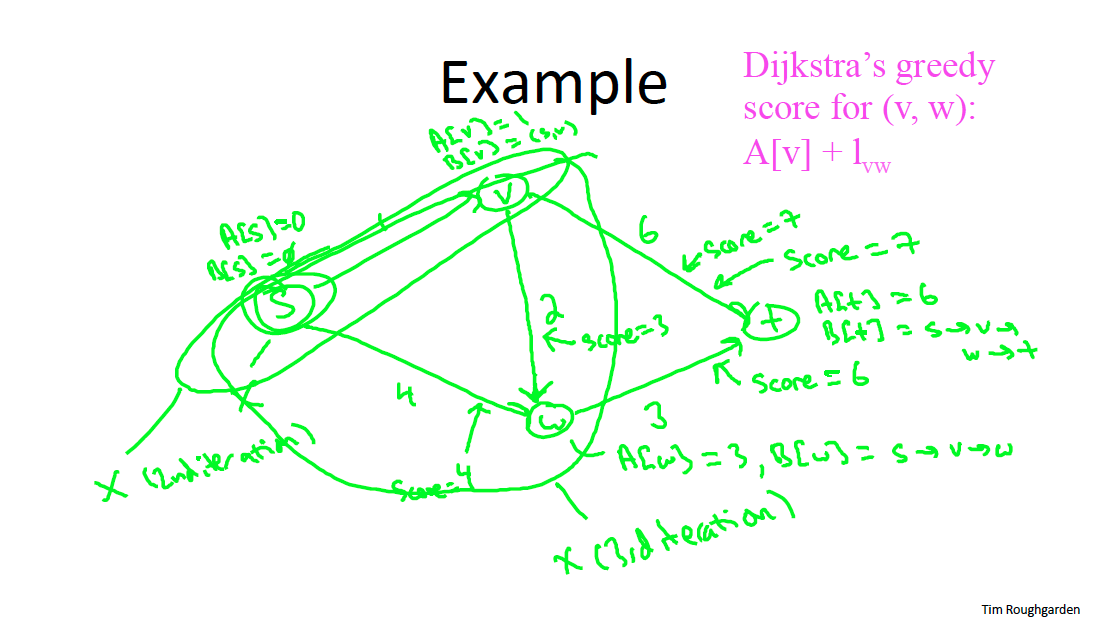 Example
Dijkstra's greedy
score for (v, w):
A[v] + l_vw
A[v] = 1
B[v] = (s,v)
A[s]=0
B[s]=ϕ
1
v
s
6
score=7
score = 7
2
score=3
t
A[t] = 6
B[t] = s→v→
w→t
score = 6
4
w
3
A[w] = 3, B[w] = s→v→w
score=4
X (2nd iteration)
X (3rd iteration)
Tim Roughgarden